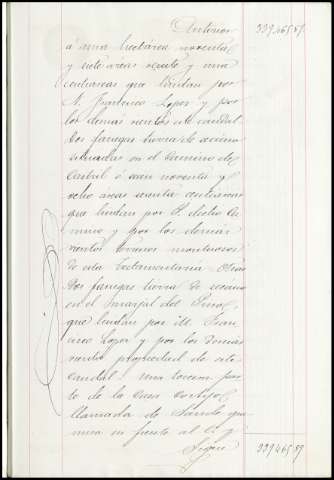 Anterior 229.465.57
á una hectárea noventa
y siete áreas veinte y una
centiáreas que lindan por
N. Francisco Lopez y por
los demás vientos este caudal.
Dos fanegas tierra de secano
situadas en el Camino de
Castril ó sean noventa y
ocho áreas sesenta centiáreas
que lindan por S. dicho Ca
mino y por los demás
vientos
de esta testamentaría. Otras
Dos fanegas tierra de secano
en el marjal del
que lindan por M. Fran
cisco Lopez y por los demás
vientos propiedad de este
caudal. Una tercera par
te de la Casa Cortijo
llamada de que
mira su frente al O. y
Sigue 229.465.57